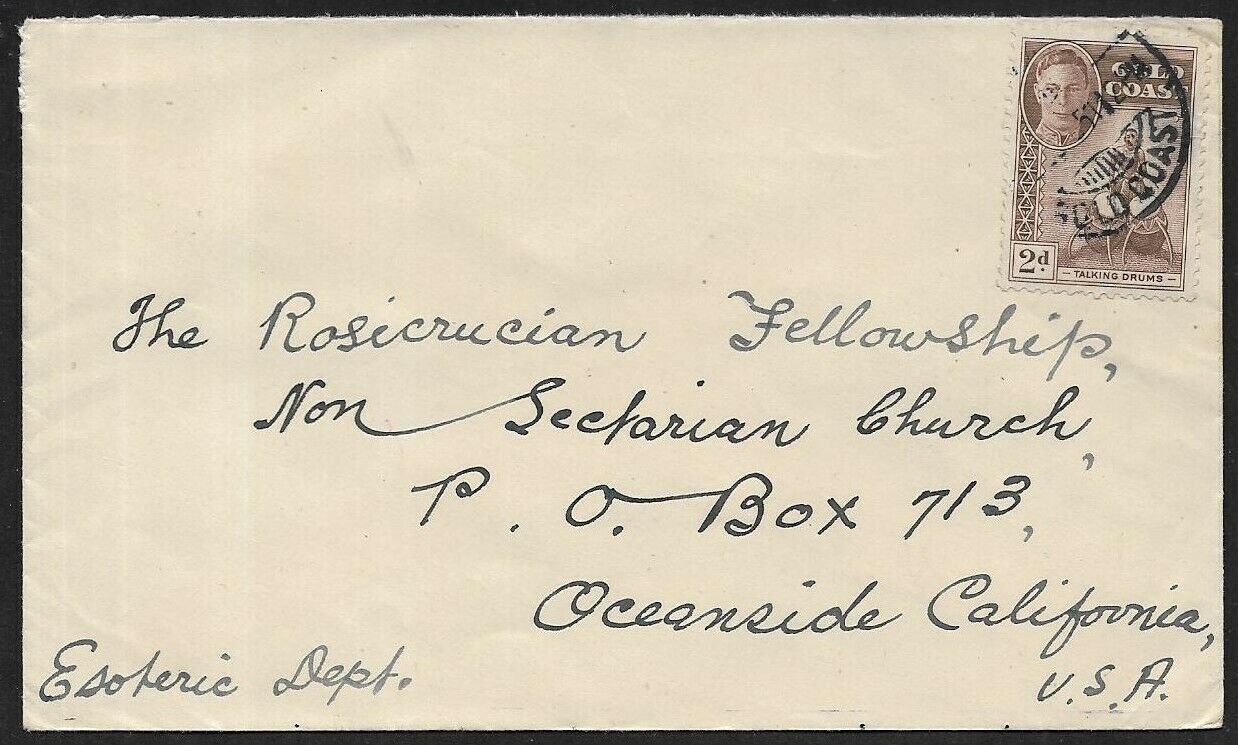 GOLD
COAST
2d
— TALKING DRUMS —
GOLD COAST
The Rosicrucian Fellowship,
Non Sectarian Church,
P. O. Box 713,
Oceanside California,
U.S.A.
Esoteric Dept.